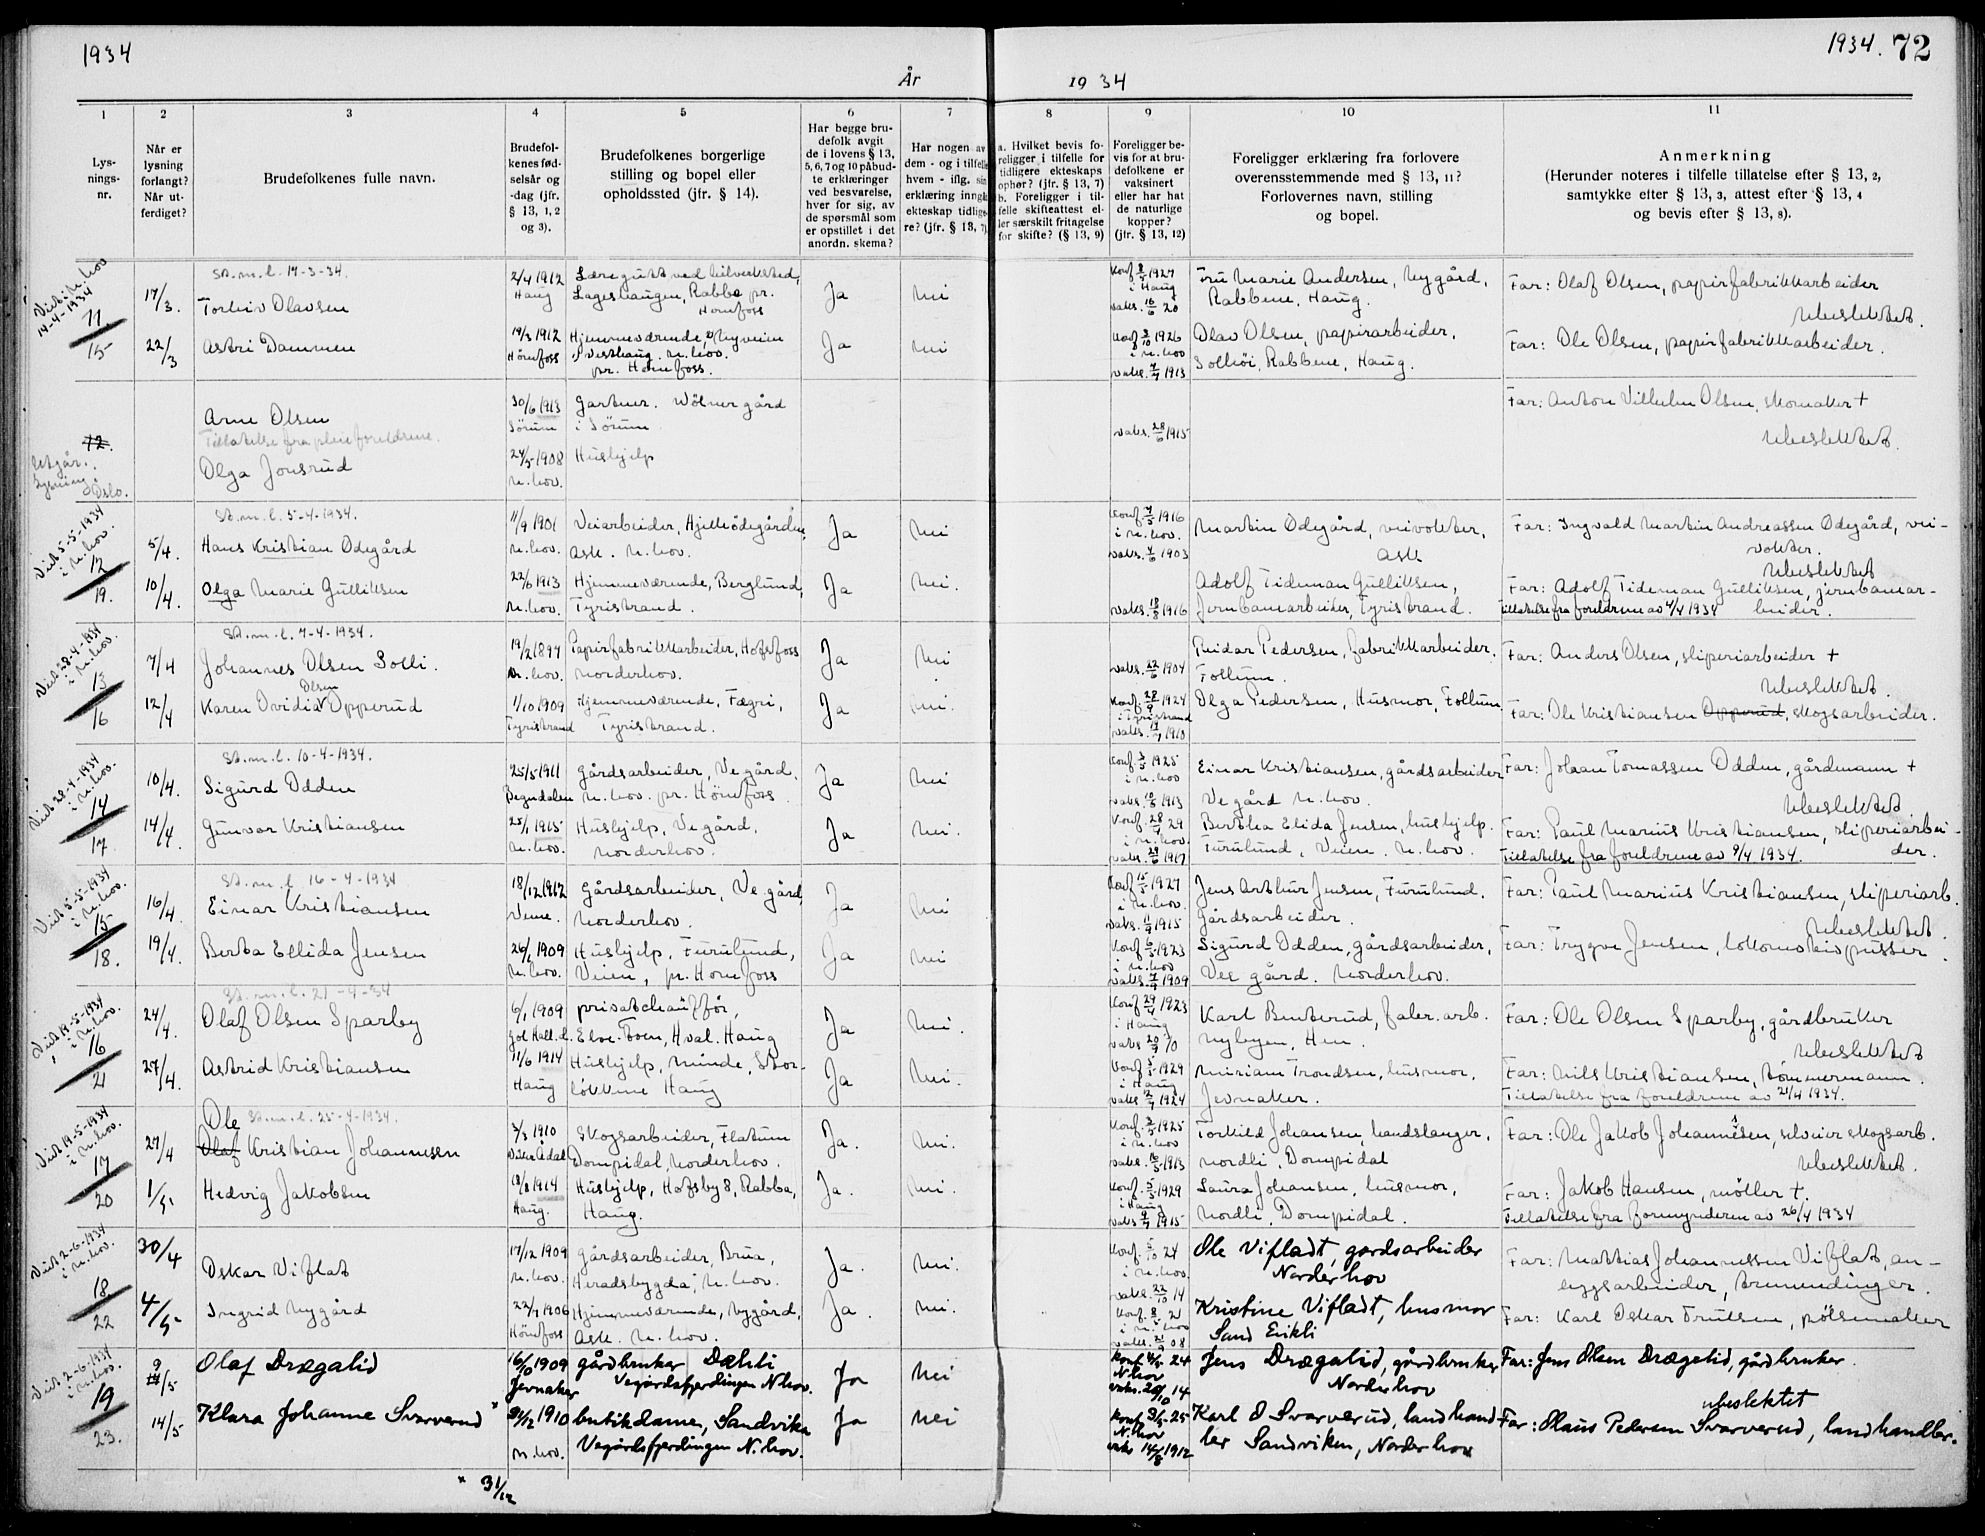 1934
1934. 72
År 1934
1 2 3 4 5 6 7 8 9 10 11
Lys-
nings-
nr.
Når er
lysning
forlangt?
Når ut-
ferdiget?
Brudefolkenes fulle navn.
Brudefol-
kenes fød-
selsår og
-dag (jfr.
§ 13, 1, 2
og 3).
Brudefolkenes borgerlige
stilling og bopel eller
opholdssted (jfr. § 14).
Har begge bru-
defolk avgit
de i lovens § 13,
5, 6, 7 og 10 påbud-
te erklæringer
ved besvarelse,
hver for sig, av
de spørsmål som
er opstillet i det
anordn. skema?
Har nogen av
dem - og i tilfelle
hvem - iflg. sin
erklæring inngå
ekteskap tidlige-
re? (jfr. § 13, 7)
a. Hvilket bevis fo-
religger i tilfelle for
tidligere ekteskaps
ophør? (jfr. § 13, 7)
b. Foreligger i til-
felle skifteattest el-
ler særskilt fritagelse
for skifte? (§ 13, 9)
Foreligger be-
vis for at bru-
defolkene er
vaksinert
eller har hat
de naturlige
kopper?
(jfr. § 13, 12)
Foreligger erklæring fra forlovere
overensstemmende med § 13, 11?
Forlovernes navn, stilling
og bopel.
Anmerkning
(Herunder noteres i tilfelle tillatelse efter § 13, 2,
samtykke efter § 13, 3, attest efter § 13, 4
og bevis efter § 13, 8).
Viet i N. hov
14-4-1934
11
15
St.m.l. 17-3-34.
17/3. Torleiv Olavsen
2/4 1912
Haug
Læregutt ved bilverksted,
Lageshaugen, Rabba pr.
Hønefoss
Ja Nei
Konf 8/5 1927
i Haug
vaks. 16/6 20
Fru Marie Andersen, Nygård,
Rabbene, Haug.
Far: Olaf Olsen, papirfabrikkarbeider
Ubeslektet.
22/3 Astri Dammen
19/3 1912
Hönefoss
Hjemmeværende, Nyveien
Vesthaug. N. hov.
pr. Hønefoss.
Ja Nei
Konf 3/10 1926
i N. hov
vaks. 7/7 1913
Olav Olsen, papirarbeider,
Solhöi, Rabbene, Haug.
Far: Ole Olsen, papirfabrikkarbeider.
12.
Utgår.
Lysning i Oslo.
Arne Olsen
Tillatelse fra pleieforeldrene.
30/6 1913
Sörum
Gartner. Wölner gård
i Sörum
vaks. 28/6 1915
Far: Anton Vilhelm Olsen, skomaker +
Ubeslektet.
Olga Jonsrud
24/5 1908
N. hov.
Hushjelp
Viet 5-5-1934
i N. hov.
12
19.
St.m.l. 5-4-1934.
5/4. Hans Kristian Ødegård
11/9 1901
N. hov.
Veiarbeider, Hjelleödegården,
Ask. N. hov.
Ja Nei
Konf. 7/5 1916
i N. hov.
vaks. 7/6 1903
Martin Ødegård, veivokter,
Ask
Far: Ingvald Martin Andreassen Ødegård, vei-
vokter.
Ubeslektet
10/4. Olga Marie Gulliksen
22/6 1913
N. hov.
Hjemmeværende, Berglund,
Tyristrand.
Ja Nei
vaks. 18/8 1916
Adolf Tideman Gulliksen,
Jernbanearbeider, Tyristrand.
Far: Adolf Tideman Gulliksen, jernbanear-
Tillatelse fra foreldrene av 4/4 1934 beider.
Viet 28-4-1934
i N. hov.
13
16
St.m.l. 7-4-1934.
7/4 Johannes Olsen Solli.
19/2 1897
N. hov.
Papirfabrikkarbeider, Hofsfoss
Norderhov.
Ja Nei
vaks. 22/6 1904
Reidar Pedersen, fabrikkarbeider.
Follum.
Far: Anders Olsen, sliperiarbeider +
Ubeslektet.
12/4 Karen Ovidia Olsen Opperud
1/10 1909
Tyristrand
Hjemmeværende, Fægri,
Tyristrand.
Ja Nei.
Konf 28/9 1924
i Tyristrand
vaks. 17/7 1910
Olga Pedersen, Husmor, Follum
Far: Ole Kristiansen Opperud, skogsarbeider.
Viet 28-4-1934
i N. hov.
14
17.
St.m.l. 10-4-1934.
10/4. Sigurd Odden
25/5 1911
Begndalen
Gårdsarbeider, Ve gård,
N. hov. pr. Hönefoss.
Ja Nei
Konf. 3/5 1925
i N. hov
vaks. 10/6 1913
Einar Kristiansen, gårdsarbeider
Ve gård N. hov.
Far: Johan Tomassen Odden, gårdmann +
Ubeslektet.
14/4. Gunvor Kristiansen
25/1 1915
N. hov.
Hushjelp, Ve gård,
Norderhov.
Ja Nei.
Konf. 28/4 29
i N. hov.
vaks. 29/6 1917
Bertha Elida Jensen, hushjelp.
Furulund, Veien. N. hov.
Far: Paul Marius Kristiansen, sliperiarbei-
der.
Tillatelse fra foreldrene av 9/4 1934.
Viet 5-5-1934
i N. hov.
15
18.
St.m.l. 16-4-1934
16/4. Einar Kristiansen
18/12 1912
Veme.
Gårdsarbeider, Ve gård
Norderhov.
Ja Nei
Konf 15/5 1927
i N. hov.
vaks. 11/7 1915
Jens Arthur Jensen, Furulund.
Gårdsarbeider.
Far: Paul Marius Kristiansen, sliperiarb.
Ubeslektet.
19/4. Berta Ellida Jensen
26/1 1909
N. hov.
Hushjelp, Furulund,
Veien, pr. Hønefoss
Ja Nei
Konf 6/5 1923
i N. hov
vaks. 7/7 1909
Sigurd Odden, gårdsarbeider,
Vee gård. Norderhov.
Far: Trygve Jensen, lokomotivpusser.
Viet 19-5-1934
i N. hov.
16
21
St.m.l. 21-4-34
24/4. Olaf Olsen Sparby
6/1 1909
Gol Hall.d.
privatchauffør,
Elve-Toen, Hval. Haug
Ja Nei.
Konf 29/4 1923
i Haug
vaks 20/7 10
Karl Benterud, faler.arb.
Nybyen, Hen.
Far: Ole Olsen Sparby, gårdbruker
Ubeslektet
27/4. Astrid Kristiansen
11/6 1914
Haug
Hushjelp, Minde, Stor-
løkkene Haug
Ja Nei.
Konf 5/5 1929
i Haug
vaks 2/7 1924
Miriam Trondsen, husmor,
Jevnaker.
Far: Nils Kristiansen, tömmermann.
Tillatelse fra foreldrene av 21/4 1934.
Viet 19-5-1934
i N. hov.
17
20
Ole St.m.l. 25-4-1934.
27/4 Olaf Kristian Johannesen
3/3 1910
Viker Ådal
Skogsarbeider, Flatum
Dompidal, Norderhov.
Ja. Nei.
Konf. 3/5 1925
i N. hov
vaks. 10/5 1913
Torkild Johansen, handslanger,
Nordli, Dompidal
Far: Ole Jakob Johannesen, selveier skogsarb.
Ubeslektet.
1/5 Hedvig Jakobsen
18/8 1914
Haug.
Hushjelp, Hofsby 8, Rabba,
Haug.
Ja. Nei.
Konf. 5/5 1929
i Haug
vaks 9/7 1915
Laura Johansen, husmor,
Nordli, Dompidal.
Far: Jakob Hansen, möller +.
Tillatelse fra formynderen av 26/4 1934
Viet 2-6-1934
i N. hov.
18
22
30/4 Oskar Viflat
17/12 1909
N. hov.
Gårdsarbeider, Brua,
Heradsbygda, N. hov.
Ja. Nei.
Konf. 5/10 24
i N. hov.
vaks. 22/10 14
Ole Vifladt, gardsarbeider
Norderhov
Far: Mathias Johannessen Viflat, an-
leggsarbeider,
4/5 Ingrid Nygård
22/7 1906
Hönefoss
Hjemmeværende, Nygård,
Ask. N. hov.
Ja. Nei.
Konf. 8/5 21
i N. hov
vaks. 21/9 08
Kristine Vifladt, husmor
Sand Enkli
Far: Karl Oskar Trulsen, pölsemaker
Viet 2-6-1934
i N. hov.
19
23.
9/5 Olaf Drægalid
16/10 1909
Jevnaker
gårdbruker Dæhli
Vegårdsfjerdingen N hov.
Ja Nei
Konf 4/5 24
N. hov
vaks. 20/10 14
Jens Drægalid, gårdbruker
Norderhov
Far: Jens Olsen Drægalid, gårdbruker.
ubeslektet
14/5 Klara Johanne Svarverud ×
31/12 1910
N. hov.
butikdame, Sandvika
Vegårdsfjerdingen N. hov.
Ja Nei
Konf 3/5 25
N. hov
vaks 14/8 1912
Karl O Svarverud, landhand-
ler Sandviken, Norderhov
Far: Olaus Pedersen Svarverud, landhandler.
× 31/12